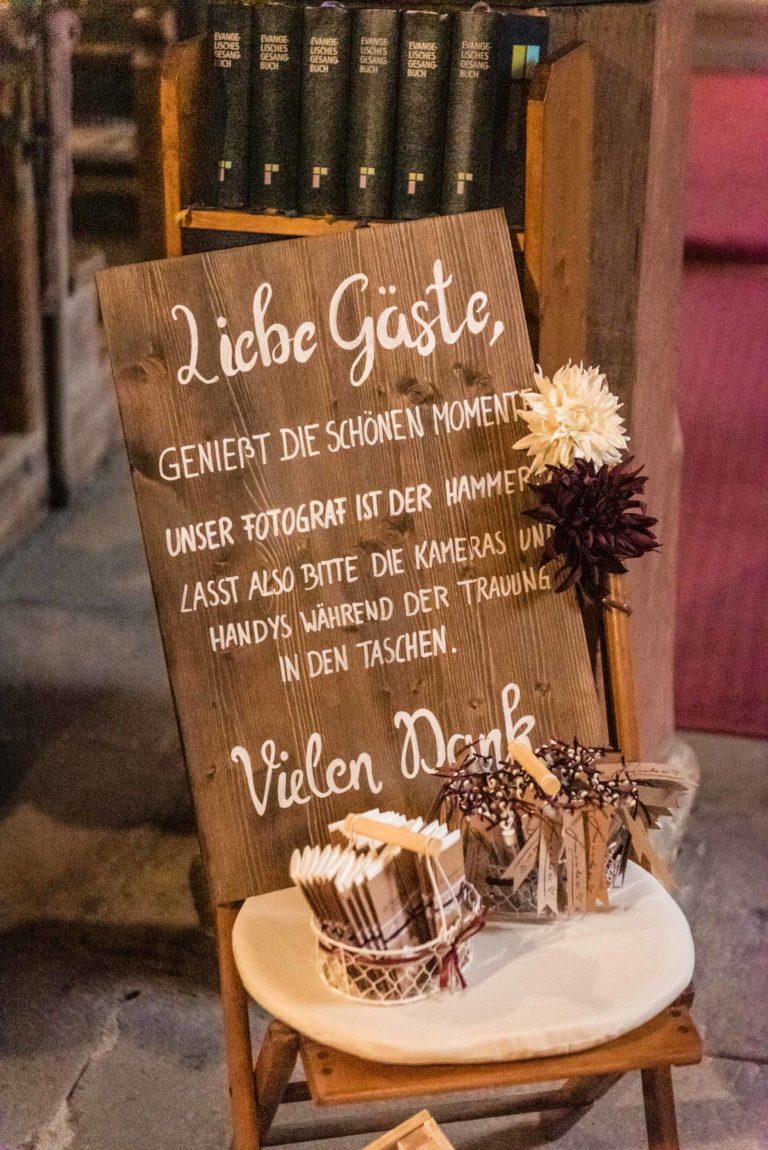 EVANGE-
LISCHES
GESANG-
BUCH
EVANGE-
LISCHES
GESANG-
BUCH
EVANGE-
LISCHES
GESANG-
BUCH
EVANGE-
LISCHES
GESANG-
BUCH
EVANGE-
LISCHES
GESANG-
BUCH
EVANGE-
LISCHES
GESANG-
BUCH
Liebe Gäste,
GENIEßT DIE SCHÖNEN MOMENTE
UNSER FOTOGRAF IST DER HAMMER
LASST ALSO BITTE DIE KAMERAS UND
HANDYS WÄHREND DER TRAUUNG
IN DEN TASCHEN.
Vielen Dank